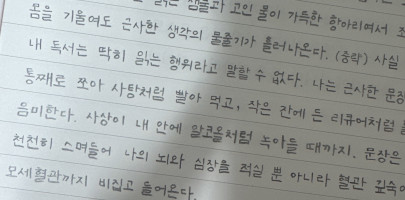 맑은 샘물과 고인 물이 가득한 항아리여서 조
몸을 기울여도 근사한 생각의 물줄기가 흘러나온다. (중략) 사실
내 독서는 딱히 읽는 행위라고 말할 수 없다. 나는 근사한 문장
통째로 쪼아 사탕처럼 빨아 먹고, 작은 잔에 든 리큐어처럼 홀
음미한다. 사상이 내 안에 알코올처럼 녹아들 때까지. 문장은
천천히 스며들어 나의 뇌와 심장을 적실 뿐 아니라 혈관 깊숙이
모세혈관까지 비집고 들어온다.